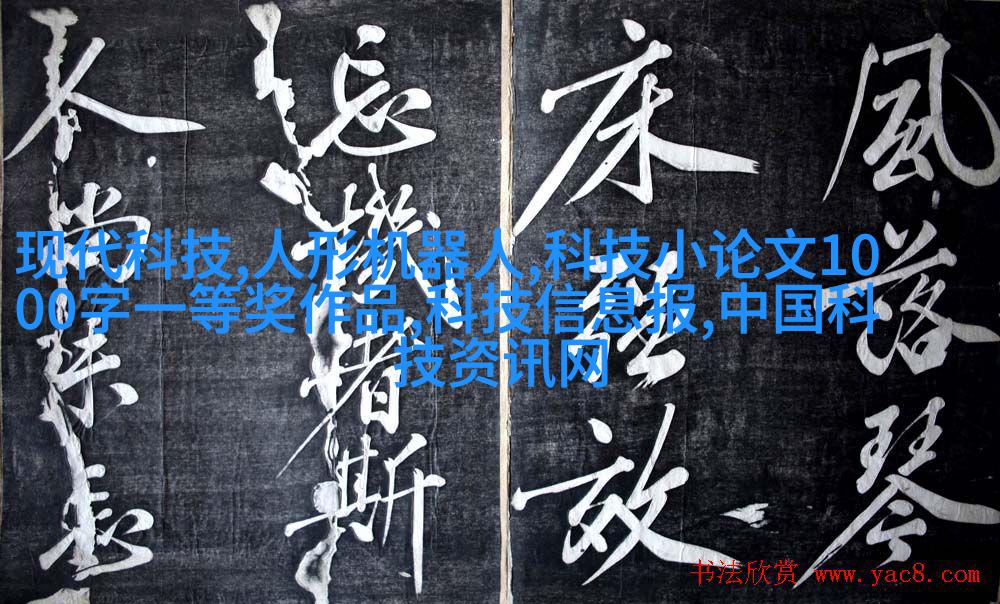 風落琴
床故
忘機者斯
现代科技,人形机器人,科技小论文10
00字一等奖作品,科技信息报,中国科
技资讯网
书法欣赏 www.yac8.com